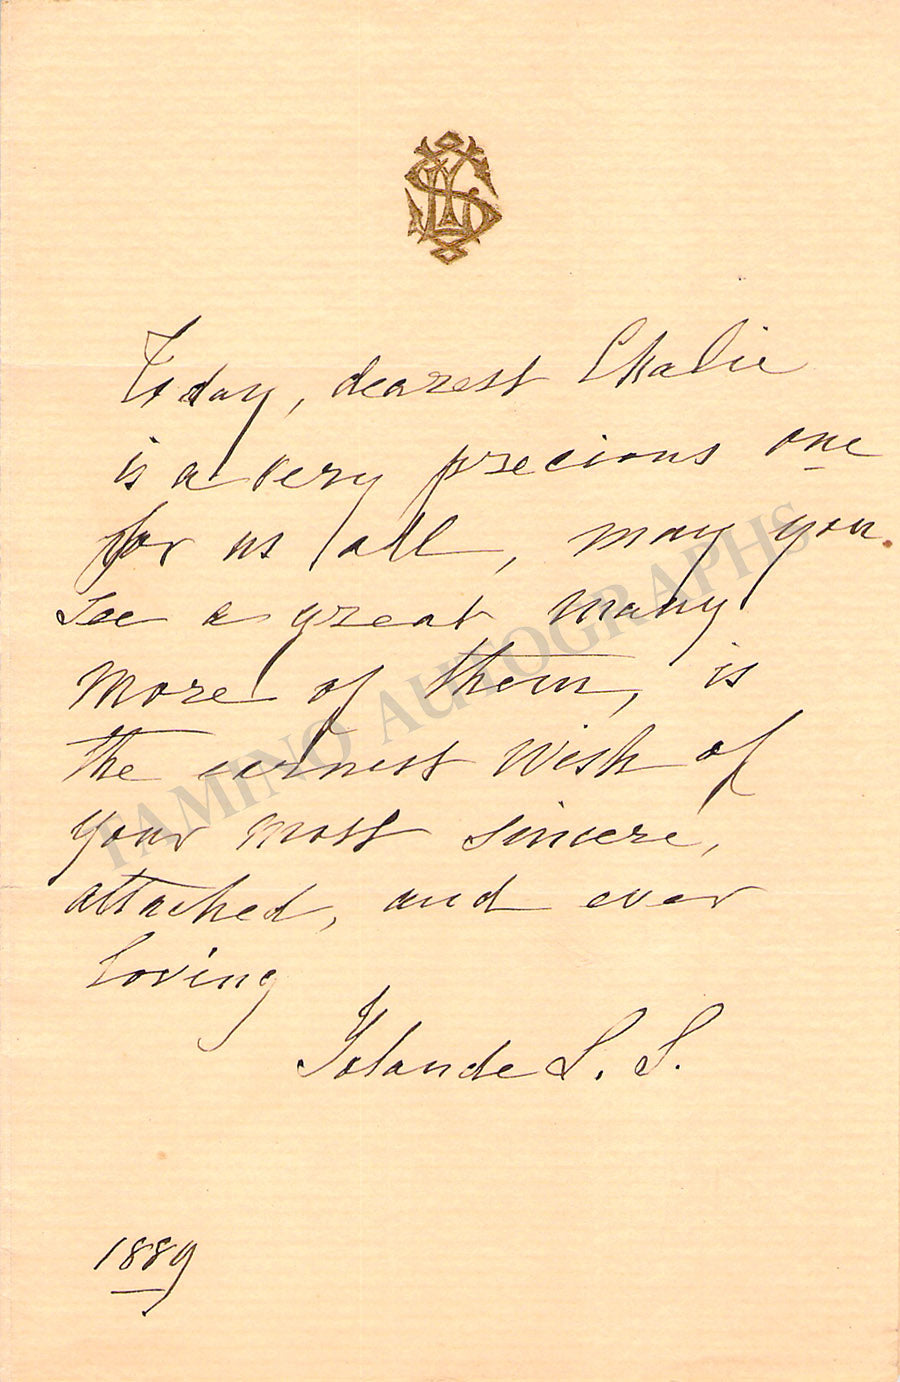 Today, dearest
is a very precious one
for us all, may you
see a great many
more of them, is
the earnest wish of
your most sincere,
attached, and ever
loving
Yolande L. S.
1889
TAMINO AUTOGRAPHS